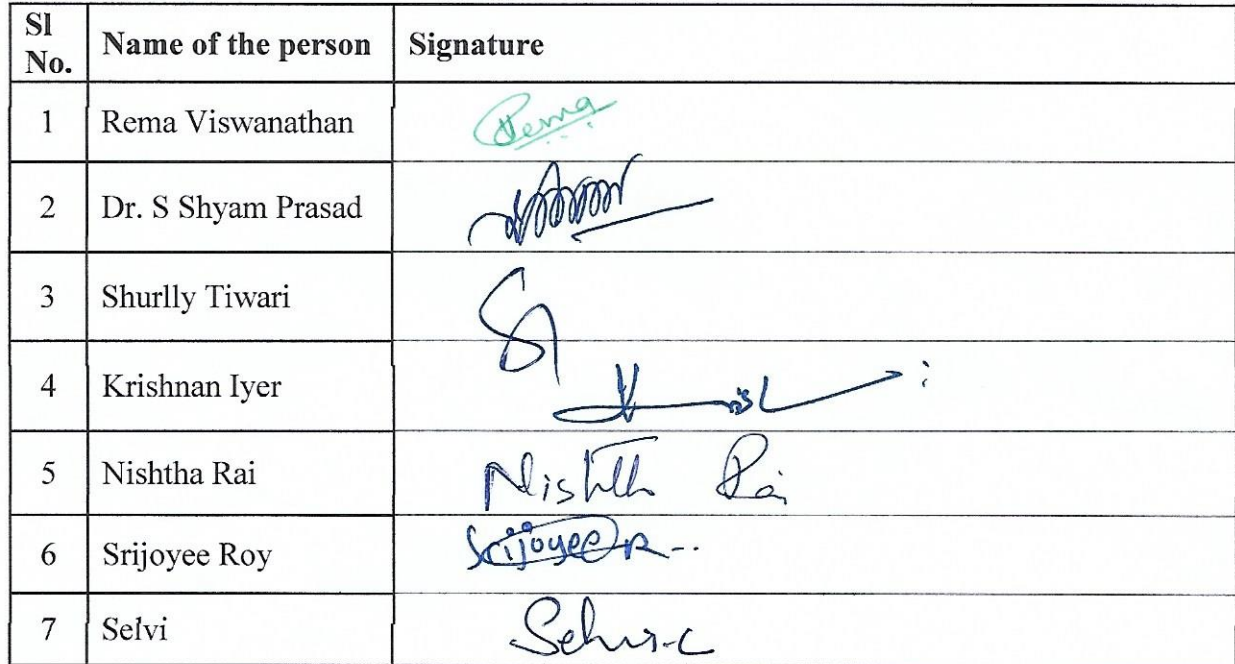 Sl No. Name of the person Signature
1 Rema Viswanathan Rema
2 Dr. S Shyam Prasad
3 Shurlly Tiwari
4 Krishnan Iyer
5 Nishtha Rai Nishtha Rai
6 Srijoyee Roy Srijoyee R
7 Selvi Selvi-C